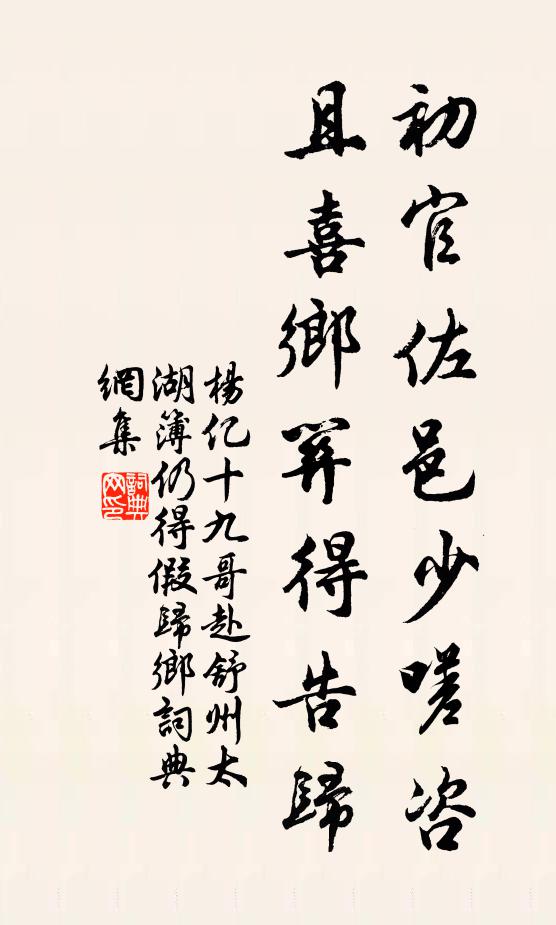 初官佐邑少嗟咨
且喜鄉筭得告歸
楊亿十九哥赴舒州太
湖簿仍得假歸鄉詞典
網集
詞典
网印